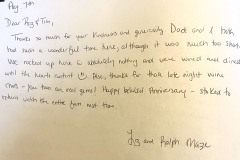 Aug 7th
Dear Peg & Tim,
Thanks so much for your kindness and generosity. Dad and I both
had such a wonderful time here, although it was much too short.
We rocked up here w absolutely nothing and were wined and dined
until the hearts content ☺ Also, thanks for those late night wine
chats - you two are real gems! Happy belated Anniversary - stoked to
return with the entire fam next time.
Liz and Ralph Maze